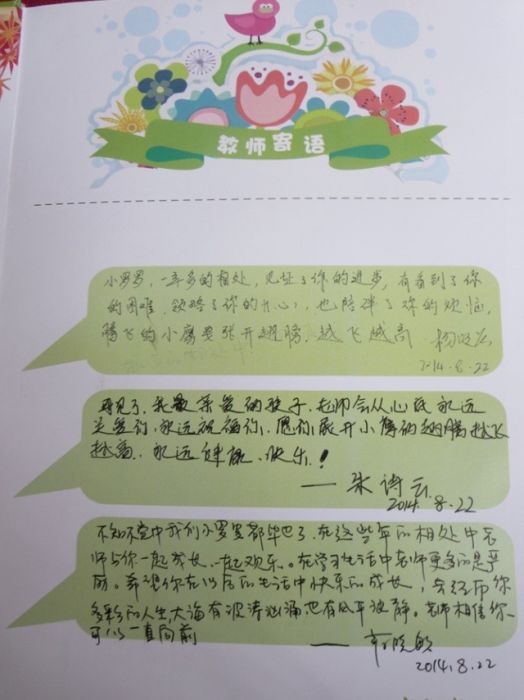 教师寄语
小罗罗，一年多的相处，见证了你的进步，有看到了你
的困难，领略了你的开心，也陪伴了你的烦恼，
腾飞的小鹰要张开翅膀，越飞越高
2014.8.22
再见了，我最亲爱的孩子，老师会从心底永远
关爱你，永远祝福你，愿你展开小鹰的翅膀越飞
越高，永远健康、快乐！
——朱诗云
2014.8.22
不知不觉中我们小罗罗都毕业了，在这些年的相处中老
师与你一起成长、一起欢乐。在学习生活中老师更多的是严
厉。希望你在以后的生活中快乐的成长，去经历你
多彩的人生，大海有波涛汹涌也有风平波静。老师相信你
可以一直向前
——
2014.8.22